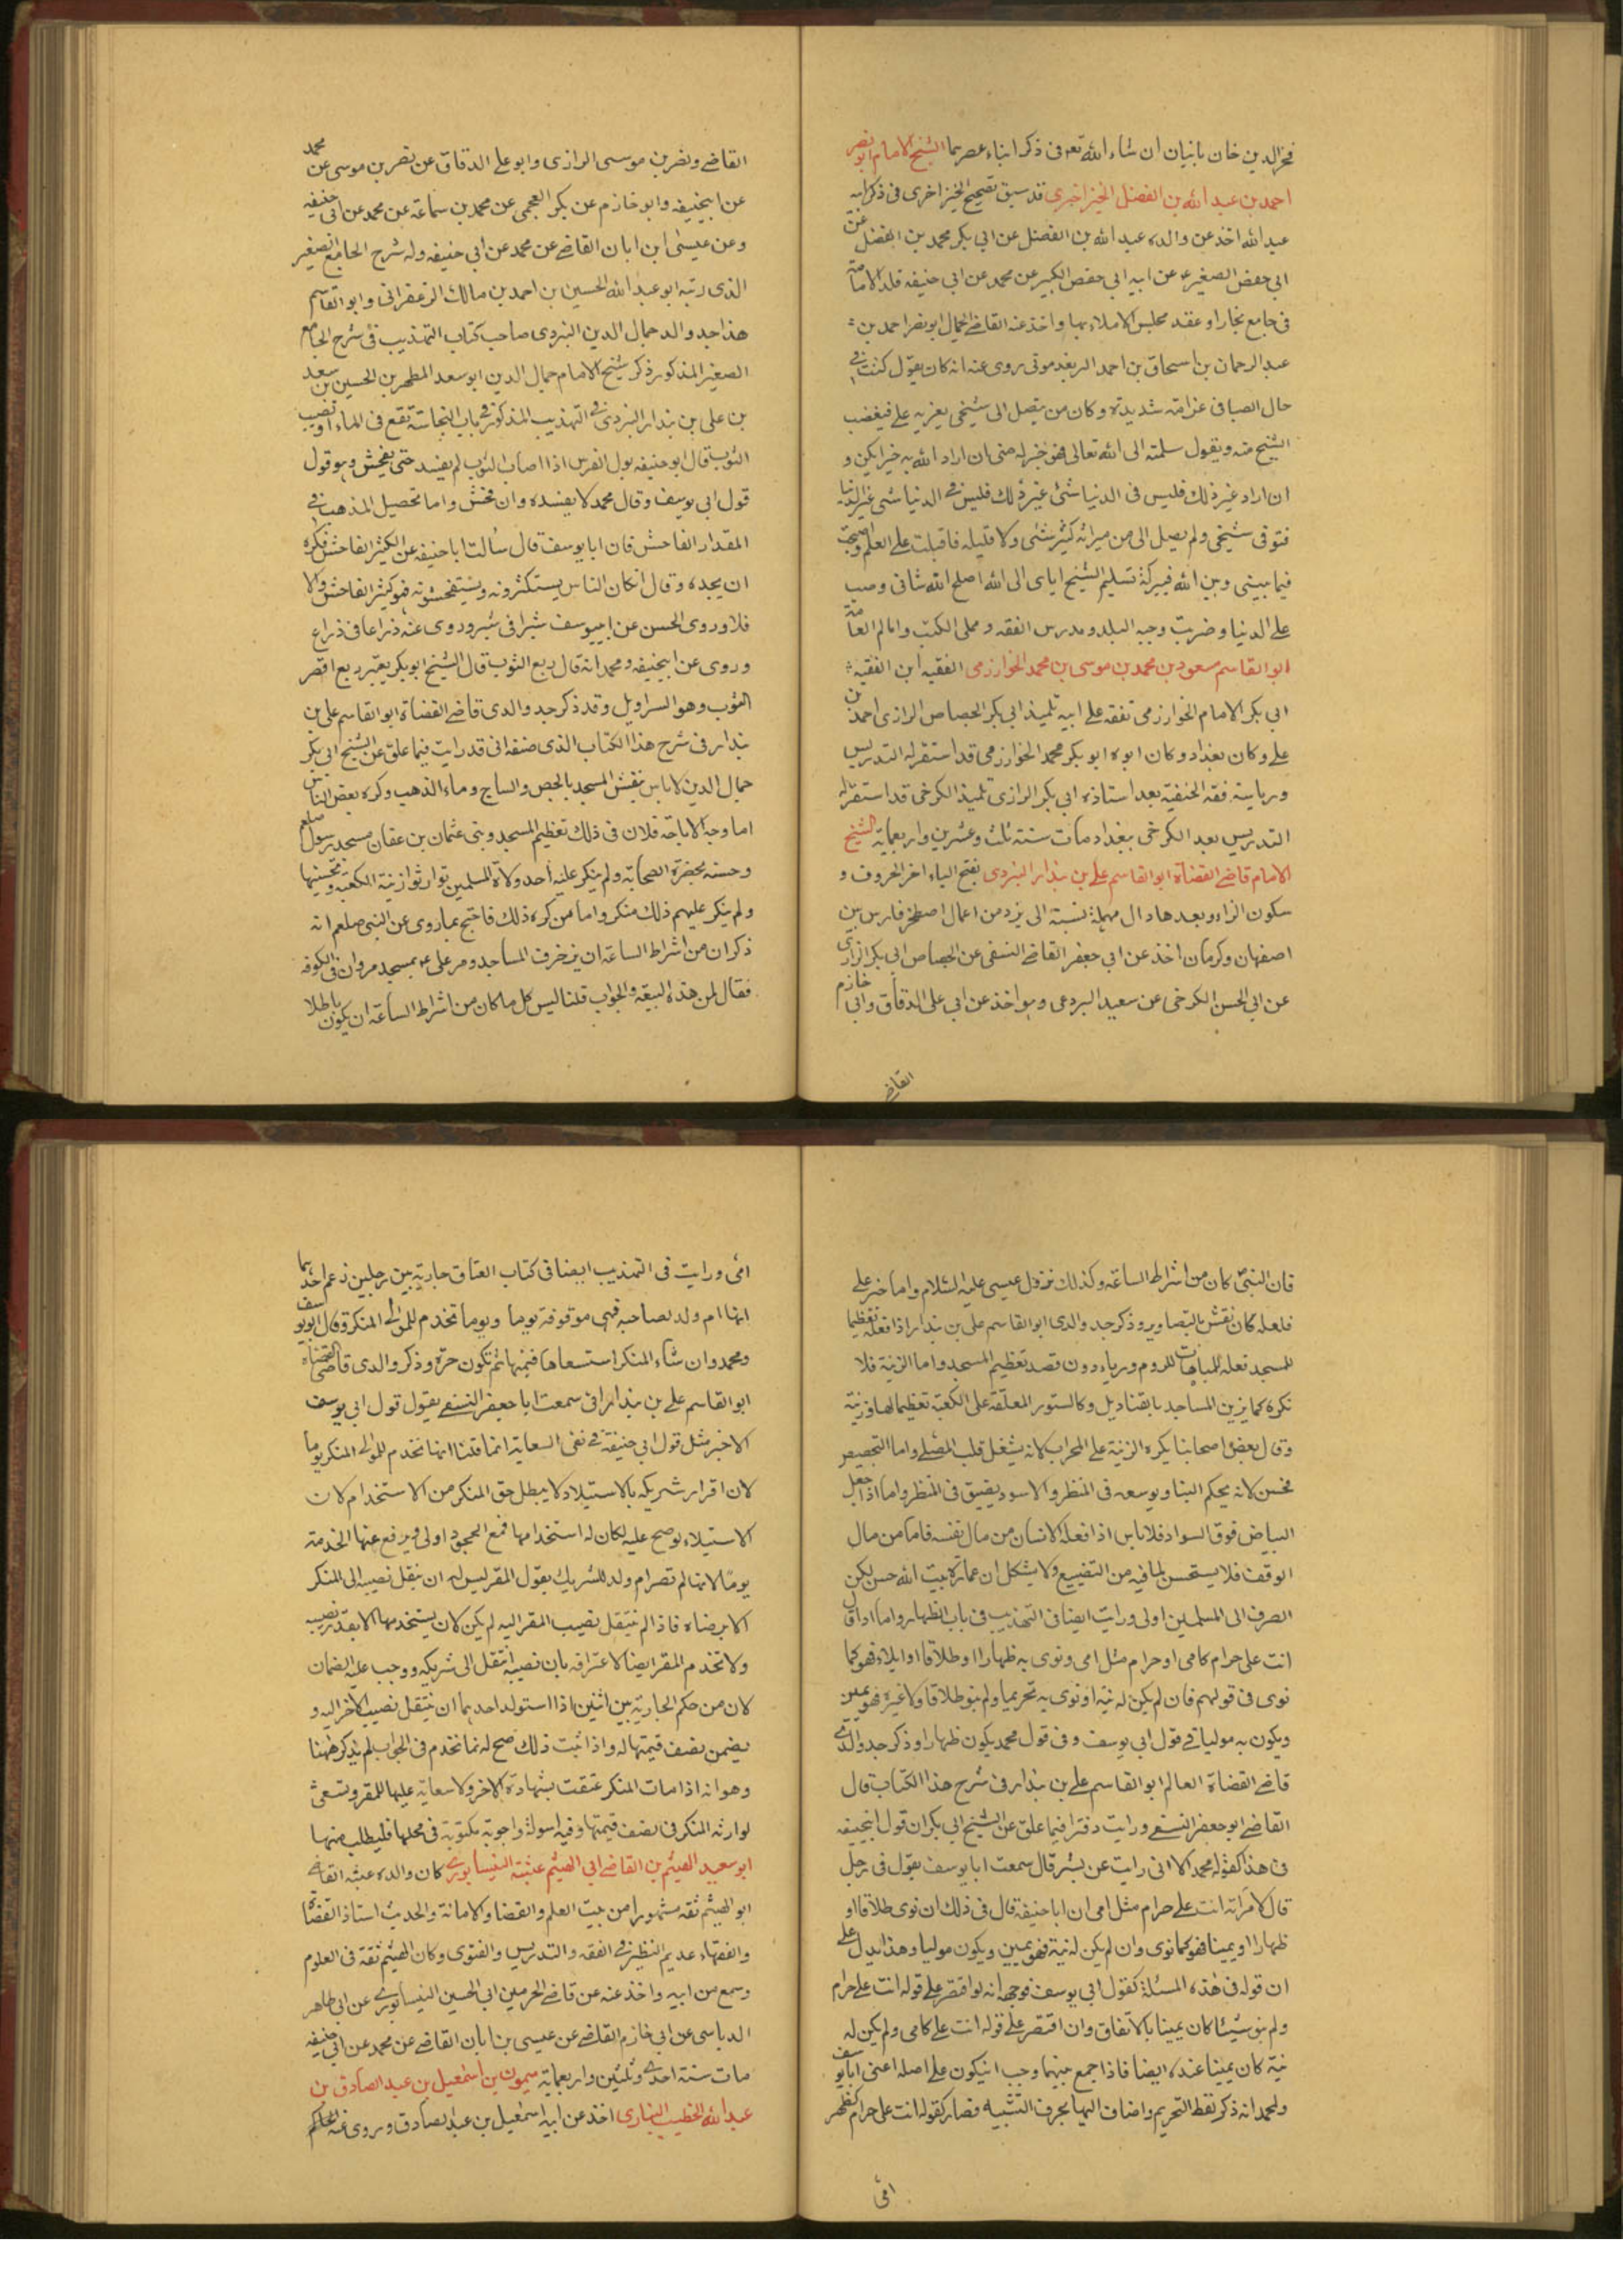 فخر الدين خان يأتيان ان شاء الله تعه فى ذكر ابناء عصرهما الشيخ الامام ابو نصر
احمد بن عبد الله بن الفضل الخيزاخزى قد سبق تصحيح الخيزاخزى فى ذكر ابيه
عبد الله اخذ عن والده عبد الله بن الفضل عن ابى بكر محمد بن الفضل عن
ابى حفص الصغير عن ابيه ابى حفص الكبير عن محمد عن ابى حنيفه قلد الامامة
فى جامع بخارا وعقد مجلس الاملاء بها واخذ عنه القاضى الجمال ابو نصر احمد بن
عبد الرحمان بن اسحاق بن احمد الريغدمونى روى عنه انه كان يقول كنت فى
حال الصبا فى عرامة شديدة وكان من يتصل الى شيخى يغريه على فيغضب
الشيخ منه ويقول سلمته الى الله تعالى فهو خير له منى ان اراد الله به خيرا يكن و
ان اراد غير ذلك فليس فى الدنيا شئ غير ذلك فليس فى الدنيا شى
فتوفى شيخى ولم يصل الى من ميراثه كثير شئى ولا قليله فاقبلت على العلم
فيما بينى وبين الله فببركة تسليم الشيخ اياى الى الله اصلح الله شانى وصب
على الدنيا وضربت وجيه البلد ومدرس الفقه ومملى الكتب وامام العامة
ابو القاسم مسعود بن محمد بن موسى بن محمد الخوارزمى الفقيه ابن الفقيه
ابى بكر الامام الخوارزمى تفقه على ابيه تلميذ ابى بكر الجصاص الرازى احمد بن
على وكان ببغداد وكان ابوه ابو بكر محمد الخوارزمى قد استقر له التدريس
ورياسة فقه الحنفية بعد استاذه ابى بكر الرازى تلميذ الكرخى قد استقر له
التدريس بعد الكرخى ببغداد مات سنة ثلث وعشرين واربعماية الشيخ
الامام قاضى القضاة ابو القاسم على بن بندار اليزدى بفتح الياء اخر الحروف و
سكون الزاء وبعدها دال مهملة نسبة الى يزد من اعمال اصطخر فارس بين
اصفهان وكرمان اخذ عن ابى جعفر القاضى النسفى عن الجصاص ابى بكر الرازى
عن ابى الحسن الكرخى عن سعيد البردعى وهو اخذ عن ابى على الدقاق وابى خازم
القاضى
القاضى ونصر بن موسى الرازى وابو على الدقاق عن نصر بن موسى عن محمد
عن ابيحنيفه وابو خازم عن بكر العجمى عن محمد بن سماعة عن محمد عن ابى حنيفه
وعن عيسى ابن ابان القاضى عن محمد عن ابى حنيفه وله شرح الجامع الصغير
الذى رتبه ابو عبد الله الحسين بن احمد بن مالك الزعفرانى وابو القاسم
هذا جد والد جمال الدين اليزدى صاحب كتاب التهذيب فى شرح الجامع
الصغير المذكور ذكر شيخ الامام جمال الدين ابو سعد المطهر بن الحسين بن سعد
بن على بن بندار اليزدى فى التهذيب المذكور فى باب النجاسة تقع فى الماء او تصيب
الثوب قال ابو حنيفه بول الفرس اذا اصاب الثوب لم يفسد حتى يفحش وهو قول
قول ابى يوسف وقال محمد لا يفسده وان فحش واما تحصيل المذهب فى
المقدار الفاحش فان ابا يوسف قال سألت ابا حنيفه عن الكثير الفاحش فكره
ان يحده وقال انكان الناس يستكثرونه ويستفحشونه فهو كثير الفاحش والا
فلا وروى الحسن عن ابييوسف شبرا فى شبر وروى عنه ذراعا فى ذراع
وروى عن ابيحنيفه ومحمد انه قال ربع الثوب قال الشيخ ابو بكر يعتبر ربع اقصر
الثوب وهو السراويل وقد ذكر جد والدى قاضى القضاة ابو القاسم على بن
بندار فى شرح هذا الكتاب الذى صنفه انى قد رايت فيما علق عن الشيخ ابى بكر
جمال الدين لا باس بنقش المسجد بالجص والساج وماء الذهب وكره بعض الناس
اما وجه الاباحة فلان فى ذلك تعظيم المسجد وبنى عثمان بن عفان مسجد رسول صلعم
وحسنه بحضرة الصحابة ولم ينكر عليه احد ولاة المسلمين توارثوا زينة الكعبة وتحسينها
ولم ينكر عليهم ذلك منكر واما من كره ذلك فاحتج بما روى عن النبى صلعم انه
ذكر ان من اشراط الساعة ان يزخرف المساجد ومر على عم بمسجد مروان فى الكوفه
فقال لمن هذه البيعة والجواب قلنا ليس كل ما كان من اشراط الساعة ان يكون باطلا
فان النبى كان من اشراط الساعة وكذلك نزول عيسى عليه السلام واما خبر على
فلعله كان نقش بالتصاوير وذكر جد والدى ابو القاسم على بن بندار اذا فعله تعظيما
للمسجد فعله للمباهات للروم ورياء دون قصد تعظيم المسجد واما الزينة فلا
نكره كما يزين المساجد بالقناديل وكالستور المعلقة على الكعبة تعظيما لها وزينة
وقال بعض اصحابنا يكره الزينة على المحراب لانه يشغل قلب المصلى واما التجصيص
فحسن لانه يحكم البنا ويوسعه فى المنظر والاسود يضيق فى المنظر واما اذا جعل
البياض فوق السواد فلا باس اذا فعله الانسان من مال نفسه فاما من مال
الوقف فلا يستحسن لما فيه من التضييع ولا يشكل ان عمارة بيت الله حسن لكن
الصرف الى المسلمين اولى ورايت ايضا فى التهذيب فى باب الظهار واما اذا قال
انت على حرام كامى او حرام مثل امى ونوى به ظهارا او طلاقا او ايلاء فهو كما
نوى فى قولهم فان لم يكن له نية او نوى به تحريما ولم ينو طلاقا ولا غيره فهو يمين
ويكون به موليا فى قول ابى يوسف وفى قول محمد يكون ظهارا وذكر جد والدى
قاضى القضاة العالم ابو القاسم على بن بندار فى شرح هذا الكتاب قال
القاضى ابو جعفر النسفى ورايت دفترا فيما علق عن الشيخ ابى بكر ان قول ابيحنيفه
فى هذا كقول محمد الا انى رايت عن بشر قال سمعت ابا يوسف يقول فى رجل
قال لامراته انت على حرام مثل امى ان ابا حنيفه قال فى ذلك ان نوى طلاقا او
ظهارا او يمينا فهو كما نوى وان لم يكن له نية فهو يمين ويكون موليا وهذا يدل على
ان قوله فى هذه المسئلة كقول ابى يوسف فوجهه انه لو اقتصر على قوله انت على حرام
ولم ينو شيئا كان يمينا بالاتفاق وان اقتصر على قوله انت على كامى ولم يكن له
نية كان يمينا عنده ايضا فاذا جمع بينهما وجب ان يكون على اصله اعنى ابا يوسف
ولمحمد انه ذكر لفظ التحريم واضاف اليها بحرف التشبيه فصار كقوله انت على حرام كظهر
امى
امى ورايت فى التهذيب ايضا فى كتاب العتاق جارية بين رجلين زعم احدهما
انها ام ولد لصاحبه فهى موقوفة يوما ويوما تخدم للمولى المنكر وقال ابو يوسف
ومحمد وان شاء المنكر استسعاها فى قيمتها ثم تكون حرة وذكر والدى قاضى القضاة
ابو القاسم على بن بندار انى سمعت ابا جعفر النسفى يقول قول ابى يوسف
الاخير مثل قول ابى حنيفة فى نفى السعاية انما قلنا انها تخدم للمولى المنكر يوما
لان اقرار شريكه بالاستيلاد لا يبطل حق المنكر من الاستخدام لان
الاستيلاء لو صح عليه لكان له استخدامها فمع الجحود اولى ويرفع عنها الخدمة
يوما لانها لم تصر ام ولد للشريك بقول المقر ليس له ان ينقل نصيبه الى المنكر
الا برضاه فاذا لم ينتقل نصيب المقر اليه لم يكن لان يستخدمها الا بقدر نصيبه
ولا تخدم المقر ايضا لاعترافه بان نصيبه انتقل الى شريكه ووجب عليه الضمان
لان من حكم الجارية بين اثنين اذا استولد احدهما ان ينتقل نصيب الاخر اليه و
يضمن نصف قيمتها له واذا ثبت ذلك صح له نما تخدم فى الجواب لم يذكر ههنا
وهو انه اذا مات المنكر عتقت بشهادة الاخر ولا سعاية عليها للمقر وتسعى
لوارثه المنكر فى نصف قيمتها وفيه اسولة واجوبة مكتوبة فى محلها فليطلب منها
ابو سعيد الهيثم بن القاضى ابى الهيثم عتبة النيسابورى كان والده عتبه القاضى
ابو الهيثم ثقة مشهورا من بيت العلم والقضا والامانة والحديث استاذ القضاة
والفقهاء عديم النظير فى الفقه والتدريس والفتوى وكان الهيثم ثقة فى العلوم
وسمع من ابيه واخذ عنه عن قاضى الحرمين ابى الحسين النيسابورى عن ابى طاهر
الدباسى عن ابى خازم القاضى عن عيسى بن ابان القاضى عن محمد عن ابى حنيفه
مات سنة احدى وثلثين واربعماية ميمون بن اسمعيل بن عبد الصادق بن
عبد الله الخطيب البخارى اخذ عن ابيه اسمعيل بن عبد الصادق وروى عنه الحاكم